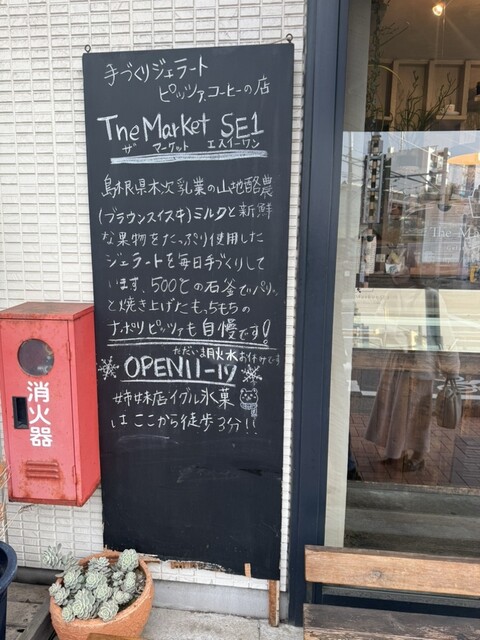 手づくりジェラート
ピッツァ、コーヒーの店
The Market SE1
ザ マーケット エスイーワン
島根県木次乳業の山地酪農
(ブラウンスイス牛)ミルクと新鮮
な果物をたっぷり使用した
ジェラートを毎日手づくりして
います。500℃の石釜でパリッ
と焼き上げたもっちもちの
ナポリピッツァも自慢です!
ただいま月火水お休みです
OPEN11-17
姉妹店イグル氷菓
はここから徒歩3分!!
消火器
The Market